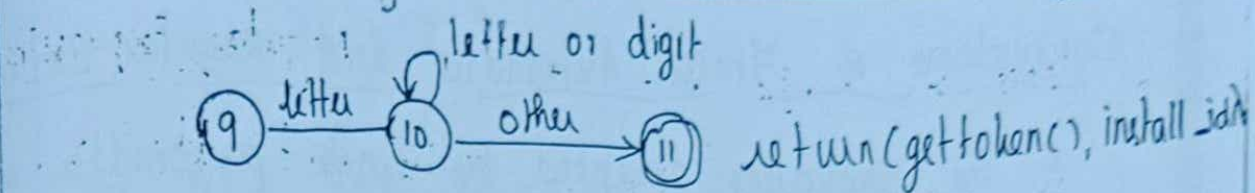 letter or digit
9 letter 10 other 11 return(gettoken(), install_id()